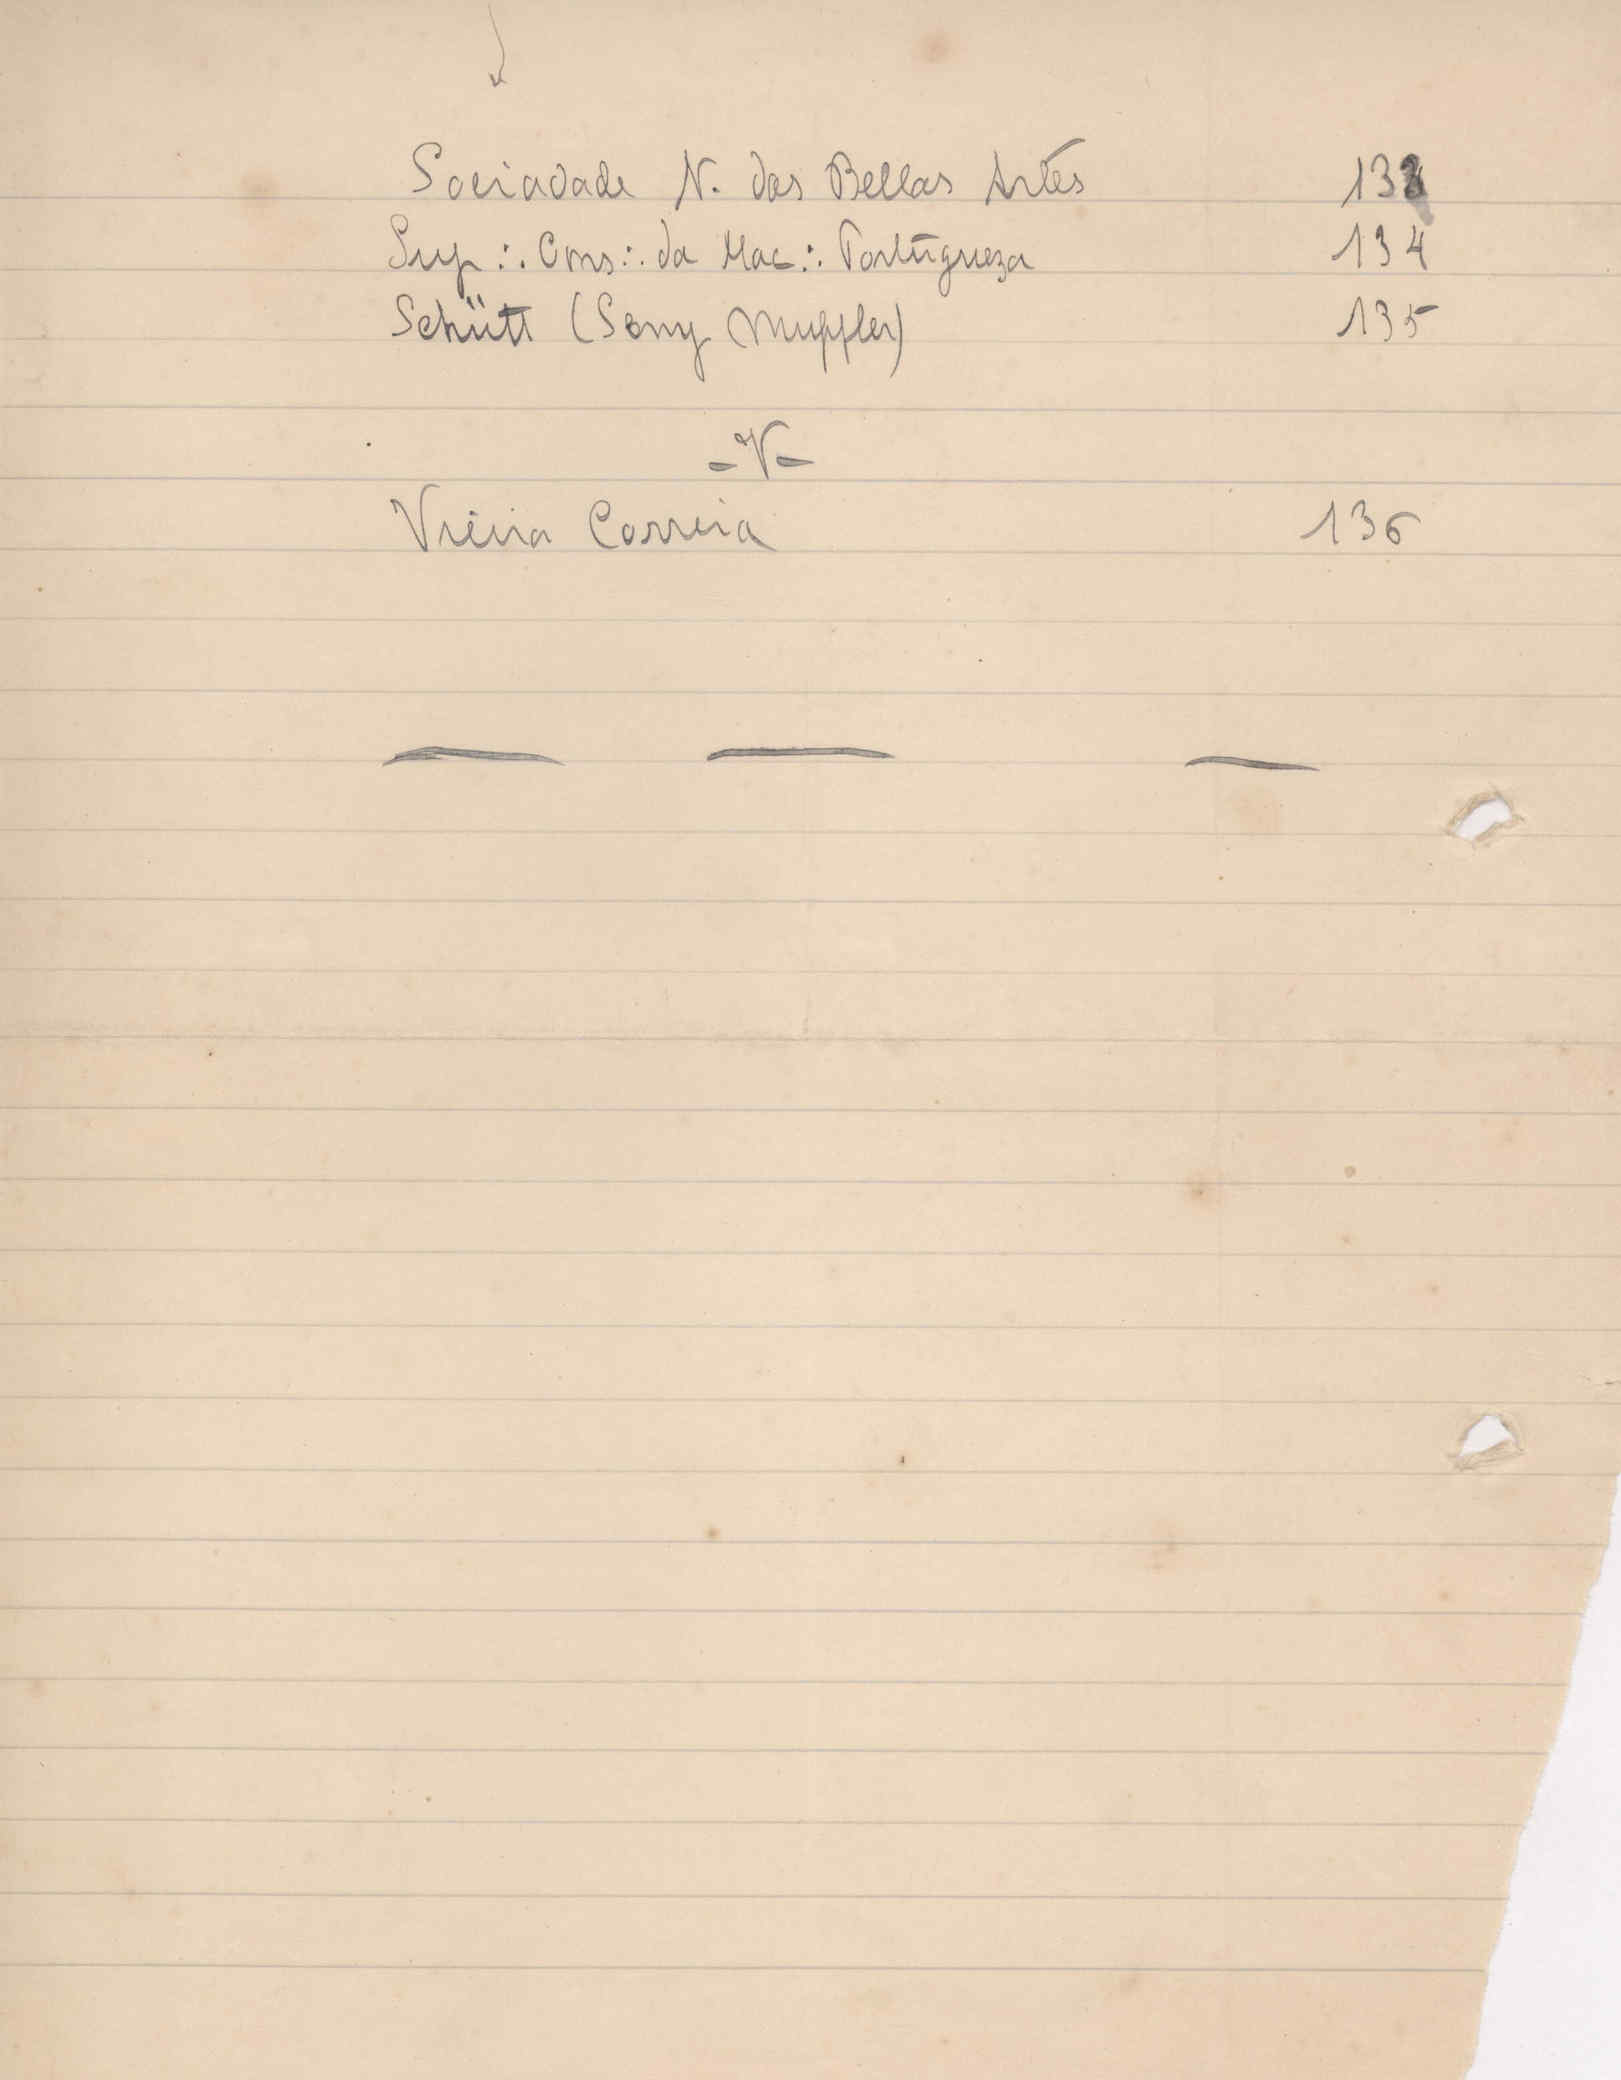 Sociedade N. das Bellas Artes 133
Sup∴ Cons∴ da Mac∴ Portugueza 134
Schütt (Sony Muffler) 135
- V -
Vieira Correia 136